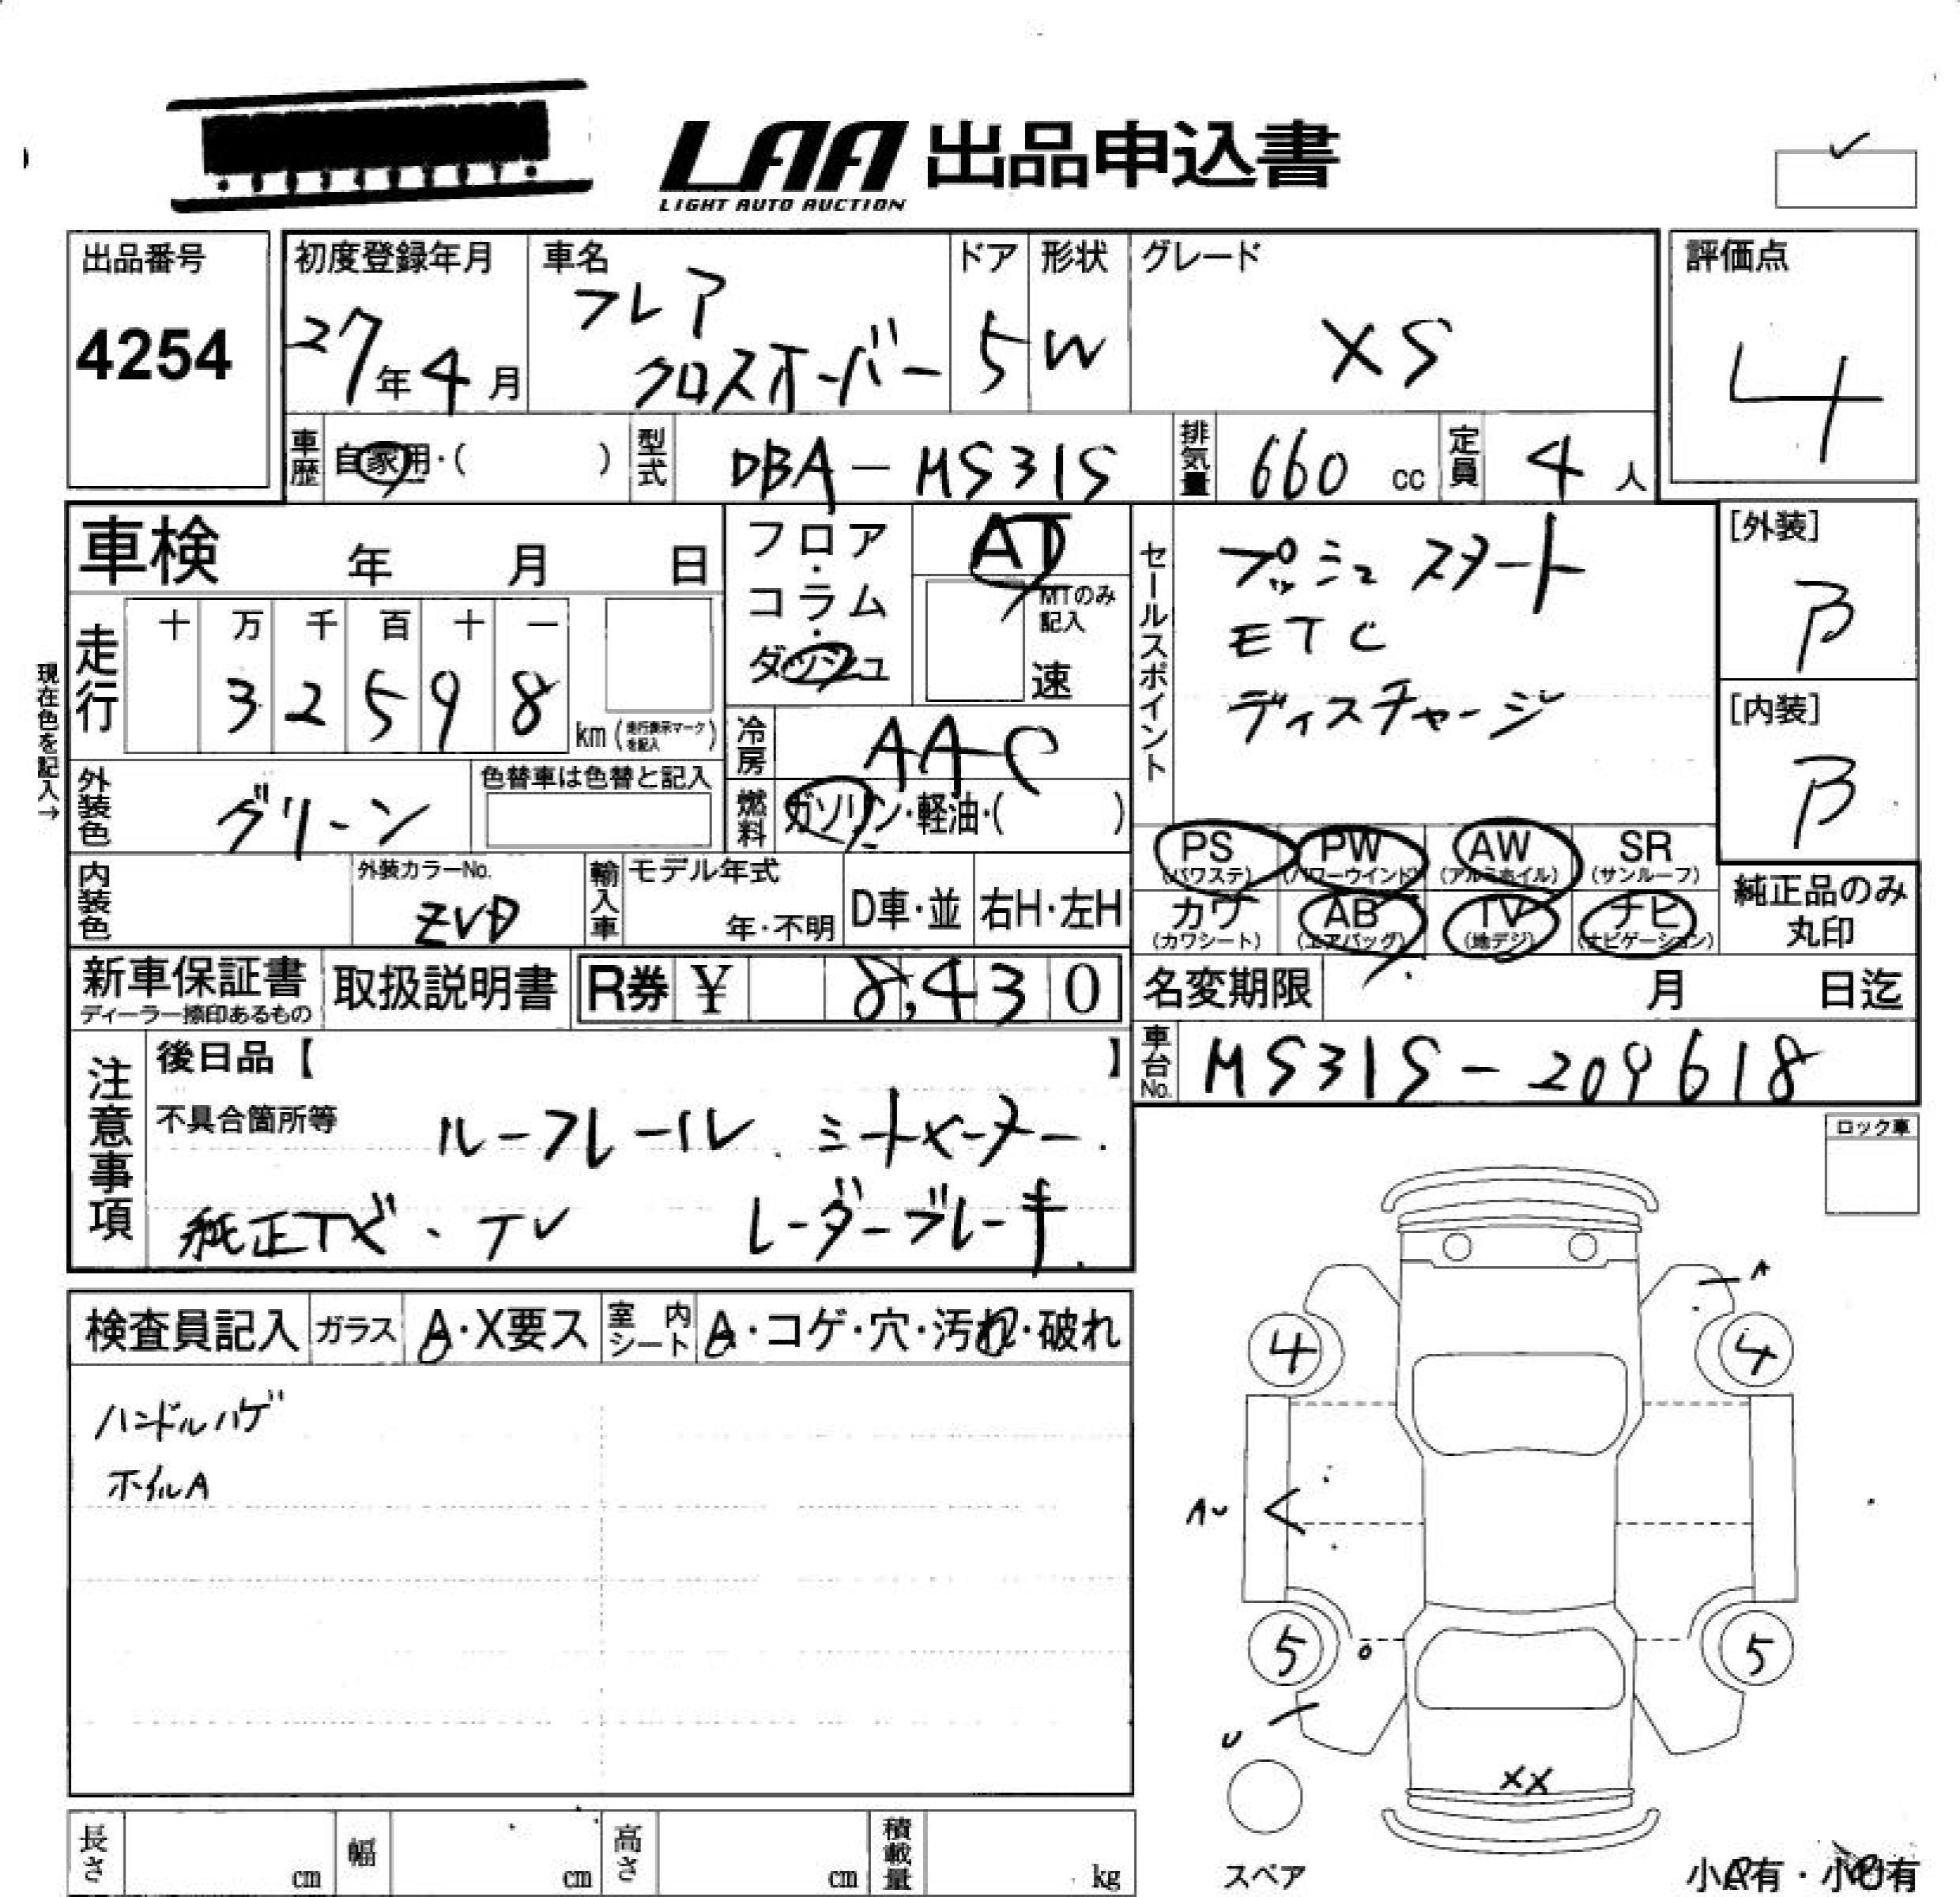 LAA 出品申込書
LIGHT AUTO AUCTION
出品番号
4254
初度登録年月
27年4月
車名
フレア
クロスオーバー
ドア
5
形状
W
グレード
XS
評価点
4
車歴
自家用・( )
型式
DBA-MS31S
排気量
660 cc
定員
4人
車検 年 月 日
フロア・コラム・ダッシュ
AT
MTのみ記入
速
セールスポイント
プッシュスタート
ETC
ディスチャージ
[外装]
B
[内装]
B
現在色を記入→
走行
十 万 千 百 十 一
3 2 5 9 8
km (走行表示マークを記入)
冷房
AAC
外装色
グリーン
色替車は色替と記入
燃料
ガソリン・軽油・( )
PS (パワステ) PW (パワーウインド) AW (アルミホイル) SR (サンルーフ)
カワ (カワシート) AB (エアバッグ) TV (地デジ) ナビ (ナビゲーション)
純正品のみ
丸印
内装色
外装カラーNo.
ZVD
輸入車
モデル年式
年・不明
D車・並
右H・左H
新車保証書
ディーラー捺印あるもの
取扱説明書
R券 ¥ 8,430
名変期限 月 日迄
車台No.
MS31S-209618
注意事項
後日品【 】
不具合箇所等
ルーフレール、シートヒーター.
純正ナビ・TV レーダーブレーキ
ロック車
検査員記入
ガラス
A・X要ス
室内シート
A・コゲ・穴・汚れ・破れ
ハンドルハゲ
ホイルA
A
4
4
AU
5
5
U
XX
スペア
長さ cm
幅 cm
高さ cm
積載量 kg
小A有・小U有